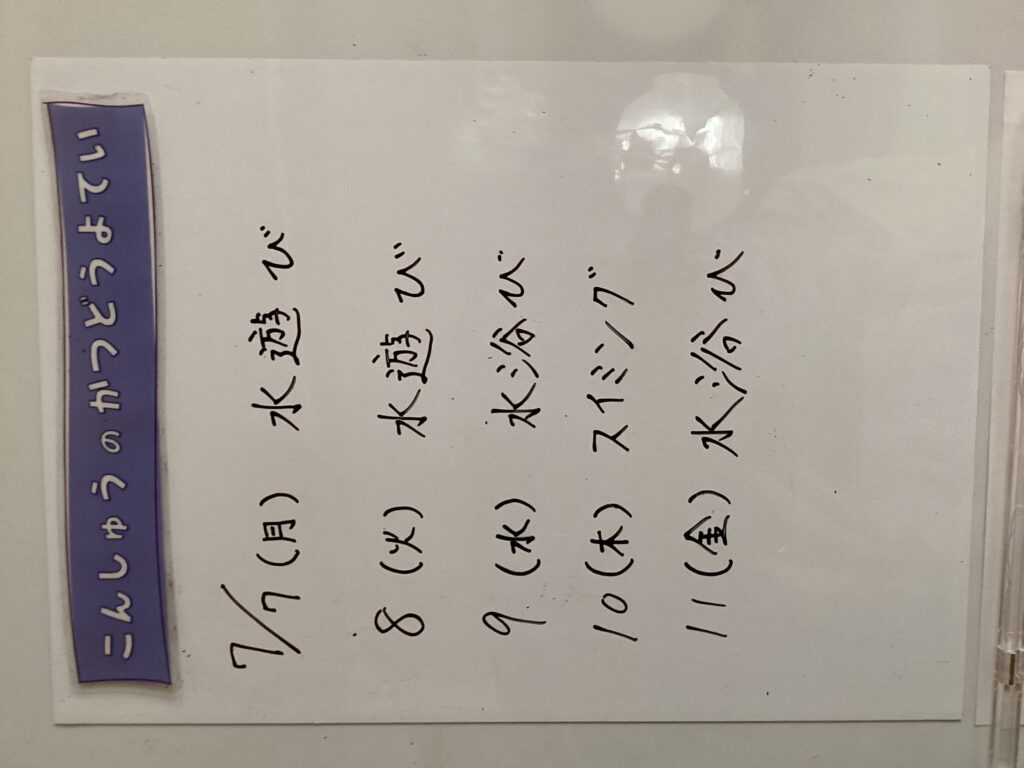 こんしゅうのかつどうよてい
7/7(月) 水遊び
8(火) 水遊び
9(水) 水浴び
10(木) スイミング
11(金) 水浴び